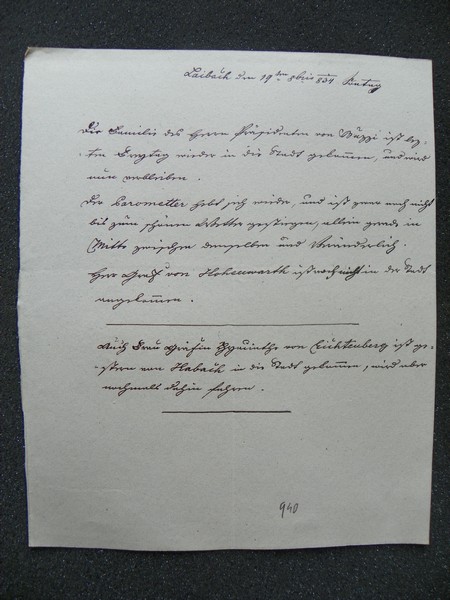 Laibach den 19ten 8bris 834 Sontag
Die Familie des Herrn Präsidenten von Buzzi ist letz-
-ten Freytag wieder in die Stadt gekommen, und wird
nun verbleiben.
Der Barometter hebt sich wieder, und ist zwar noch nicht
bis zum schönen Wetter gestiegen, allein gerade in
Mitte zwischen demselben und Veränderlich.
Herr Graf von Hohenwarth ist noch nicht in der Stadt
angekommen.
Auch Frau Gräfin Hyazinthe von Lichtenberg ist ge-
-stern von Habach in die Stadt gekommen, wird aber
nochmals dahin fahren.
940